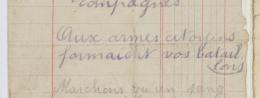 compagnes
Aux armes citoyens
formaient vos batail
lons
Marchons qu'un sang